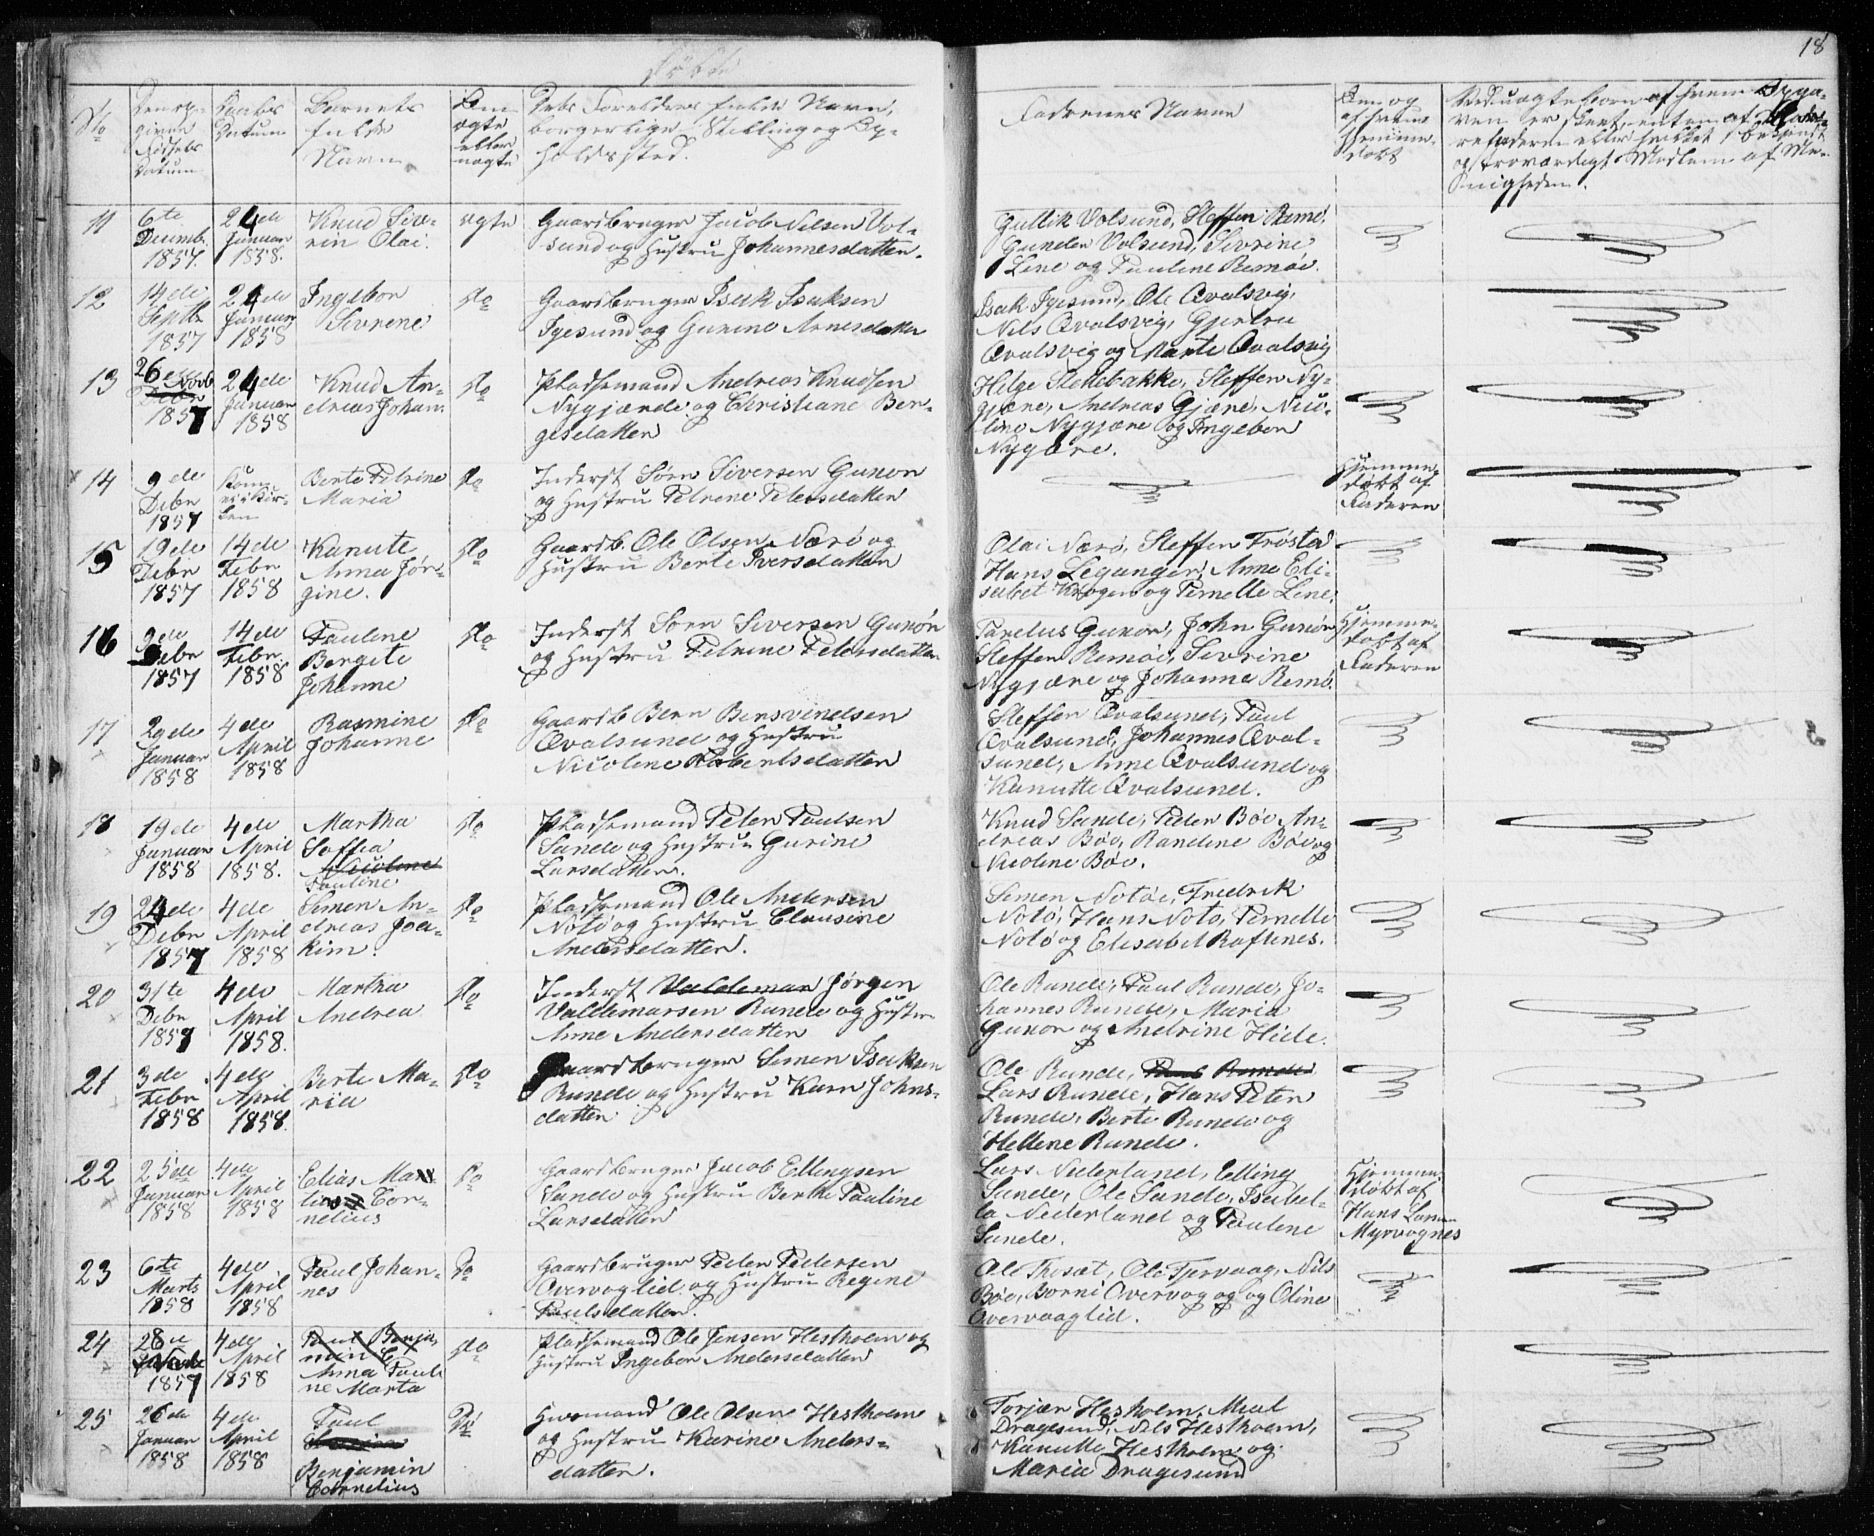 18
Døbte
No
Den op-
given
Fødsels
Datum
Daabs
Datum
Barnets
fulde
Navn
Om
ægte
eller
uægte
Dets Forældres fulde Navn,
borgerlige Stilling og Op-
holdssted.
Faddernes Navne
Om og
af hvem
hjemme-
døbt
Ved uægte Born af hvem Opga-
ven er skeet enten af
refaderen eller hvilket bekjendt
og troværdigt Medlem af Me-
nigheden.
11
6te
Decemb.
1857.
24de
Januar
1858.
Knud Siv-
rin Olai.
ægte
Gaardbruger Jacob Nilsen Vol-
sund og Hustru Johannesdatter.
Gullik Volsund, Steffen Remø,
Gunder Volsund, Sivrine
Line og Pauline Remøi.
12
14de
Septbr
1857
24de
Januar
1858
Ingebor
Sivrene
do
Gaardbruger Isak Isaksen
Igesund og Gurine Arnesdatter
Isak Igesund, Ole Qvalsvig,
Nils Qvalsvig, Gjertru
Qvalsvig og Marte Qvalsvig
13
26de Novb
Debr
1857
24de
Januar
1858
Knud An-
dreas Johan.
do
Pladsemand Andreas Knudsen
Nygjærde og Christiane Ber-
gesdatter
Helge Stokebakke, Steffen Ny-
gjære, Andreas Gjære, Nico-
line Nygjære og Ingebor
Nygjære.
14
9de
Debr
1857
Kom
ei i Kir-
ken
Berte Petrine
Maria
do
Inderst Sørn Siversen Gurøn
og Hustru Petrene Petersdatter
Hjemme-
døbt af
Faderen
15
19de
Debr
1857
14de
Febr
1858
Kanute
Anna Jør-
gine.
do
Gaardb. Ole Olsen Nærø og
Hustru Berte Iversdatter
Olai Nærø, Steffen Frøstad
Hans Leganger, Anne Eli-
sabet Kroger og Pernelle Line,
16
9de
Debr
1857
14de
Febr
1858
Pauline
Bergite
Johanne
do
Inderst Sørn Siversen Gurøn
og Hustru Petrine Petersdatter
Parelius Gurøn, John Gurøn
Steffen Remøi, Sevrine
Nygjære og Johanna Remø.
Hjemme-
døbt af
Faderen
17
29de
Januar
1858
4de
April
1858
Rasmine
Johanne
do
Gaardb Bern Bersvendsen
Qvalsund og Hustru
Nicoline Robertsdatter
Steffen Qvalsund, Paul
Qvalsund, Johannes Qval-
sund, Anne Qvalsund og
Kanutte Qvalsund.
18
19de
Januar
1858
4de
April
1858.
Martha
Soffia
Nicoline
Pauline
do
Pladsemand Peter Paulsen
Sande og Hustru Gurine
Larsdatter.
Knud Sande, Peder Bøe An-
dreas Bøe, Randine Bøe og
Nicoline Bøe.
19
24de
Debr
1857
4de
April
1858
Simen An-
dreas Joa-
kim.
do
Pladsemand Ole Andersen
Notø og Hustru Clausine
Andersdatter.
Simen Notøe, Fredrik
Notø, Hans Notø, Pernelle
Notø og Elisabet Raftenes.
20
31te
Debr
1857
4de
April
1858.
Martha
Andrea
do
Inderst Valdemar Jørgen
Valdemarsen Runde og Hustru
Anne Andersdatter
Ole Runde, Paul Runde, Jo-
hannes Runde, Maria
Gurøn og Andrine Hide.
21
3de
Febr
1858
4de
April
1858.
Berte Ma-
ria
do
Gaardbruger Simen Isaksen
Runde og Hustru Karn Johns-
datter
Ole Runde, Paul Runde
Lars Runde, Hans Peter
Runde, Berte Runde og
Hellene Runde.
22
25de
Januar
1858
4de
April
1858
Elias Mar-
tin Cor-
nelius
do
Gaardbruger Jacob Ellingsen
Sande og Hustru Berthe Pauline
Larsdatter
Lars Nederland, Elling
Sande, Ole Sande, Isabel-
la Nederland og Pauline
Sande.
Hjemme-
døbt af
Hans Larsen
Myrvognes
23
6te
Marts
1858
4de
April
1858
Paul Johan-
nes
Do
Gaardbruger Peder Pedersen
Overvaglid og Hustru Regine
Paulsdatter.
Ole Trosæt, Ole Tjervaag, Nils
Bøe, Borni Overvog og og Oline
Overvaaglid.
24
28de
1857
4de
April
1858
Paul Benja-
min C
Anna Pauli-
ne Marta
do
Pladsemand Ole Jensen Hestholm og
Hustru Ingebor Andersdatter
25
26de
Januar
1858
4de
April
1858
Paul
Benjamin
Cornelius
Do
Huusmand Ole Olsen Hestholm
og Hustru Karine Anders-
datter.
Torjær Hesholm, Mial
Dragesund, Nils Hestholm,
Kanutte Hestholm og
Maria Dragesund